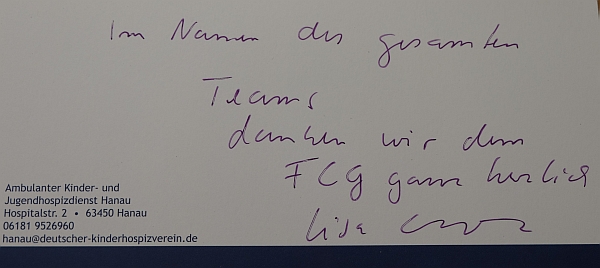 Im Namen des gesamten
Teams
danken wir dem
FCG ganz herzlich
Lisa
Ambulanter Kinder- und
Jugendhospizdienst Hanau
Hospitalstr. 2 • 63450 Hanau
06181 9526960
hanau@deutscher-kinderhospizverein.de